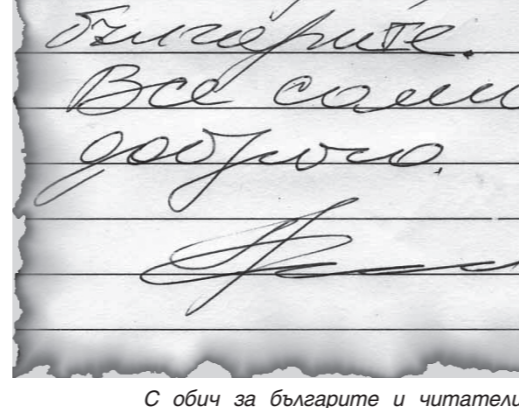 българите.
Все сами
доброто.
С обич за българите и читатели